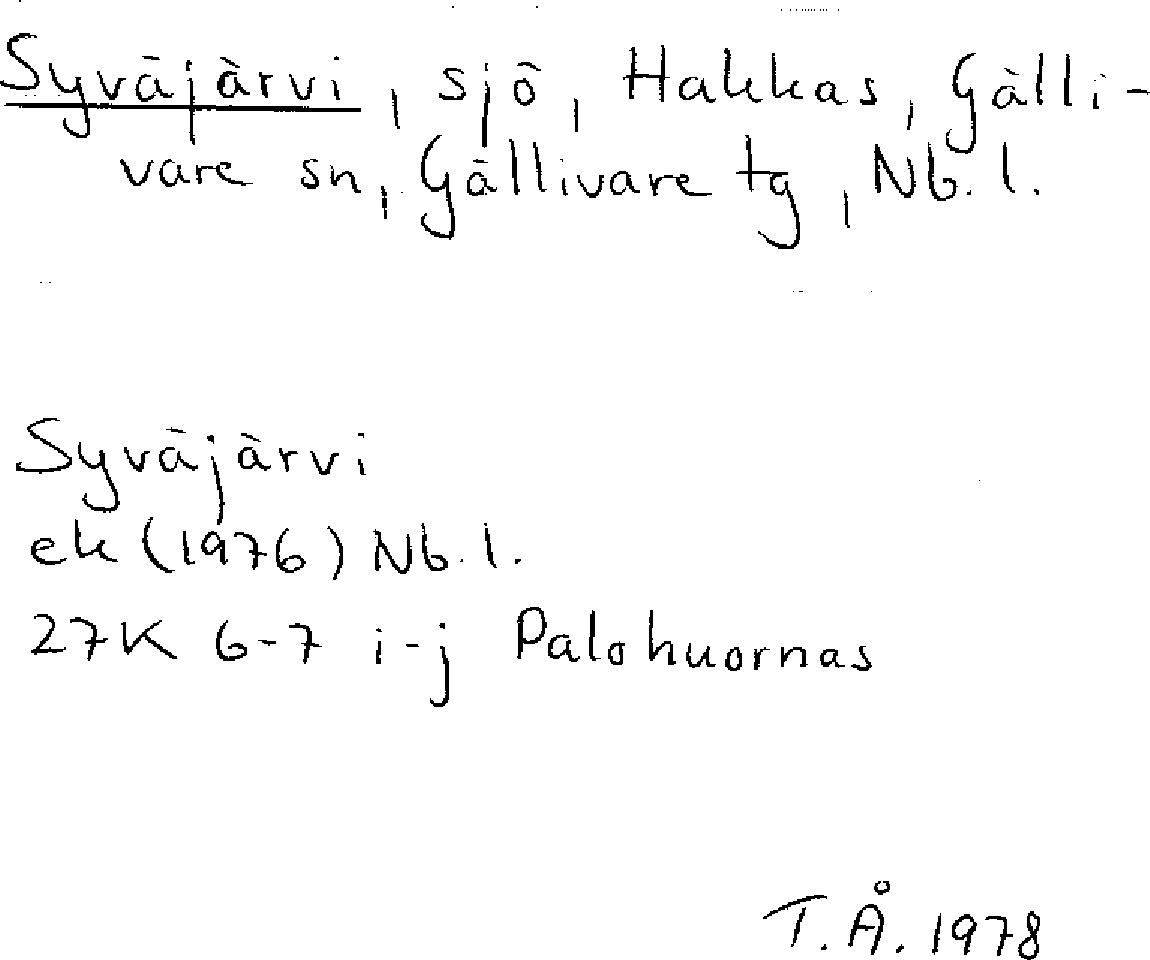 Syväjärvi, sjö, Hakkas, Gälli-
vare sn, Gällivare tg, Nb. l.
Syväjärvi
ek (1976) Nb. l.
27K 6-7 i-j Palohuornas
T.Å. 1978